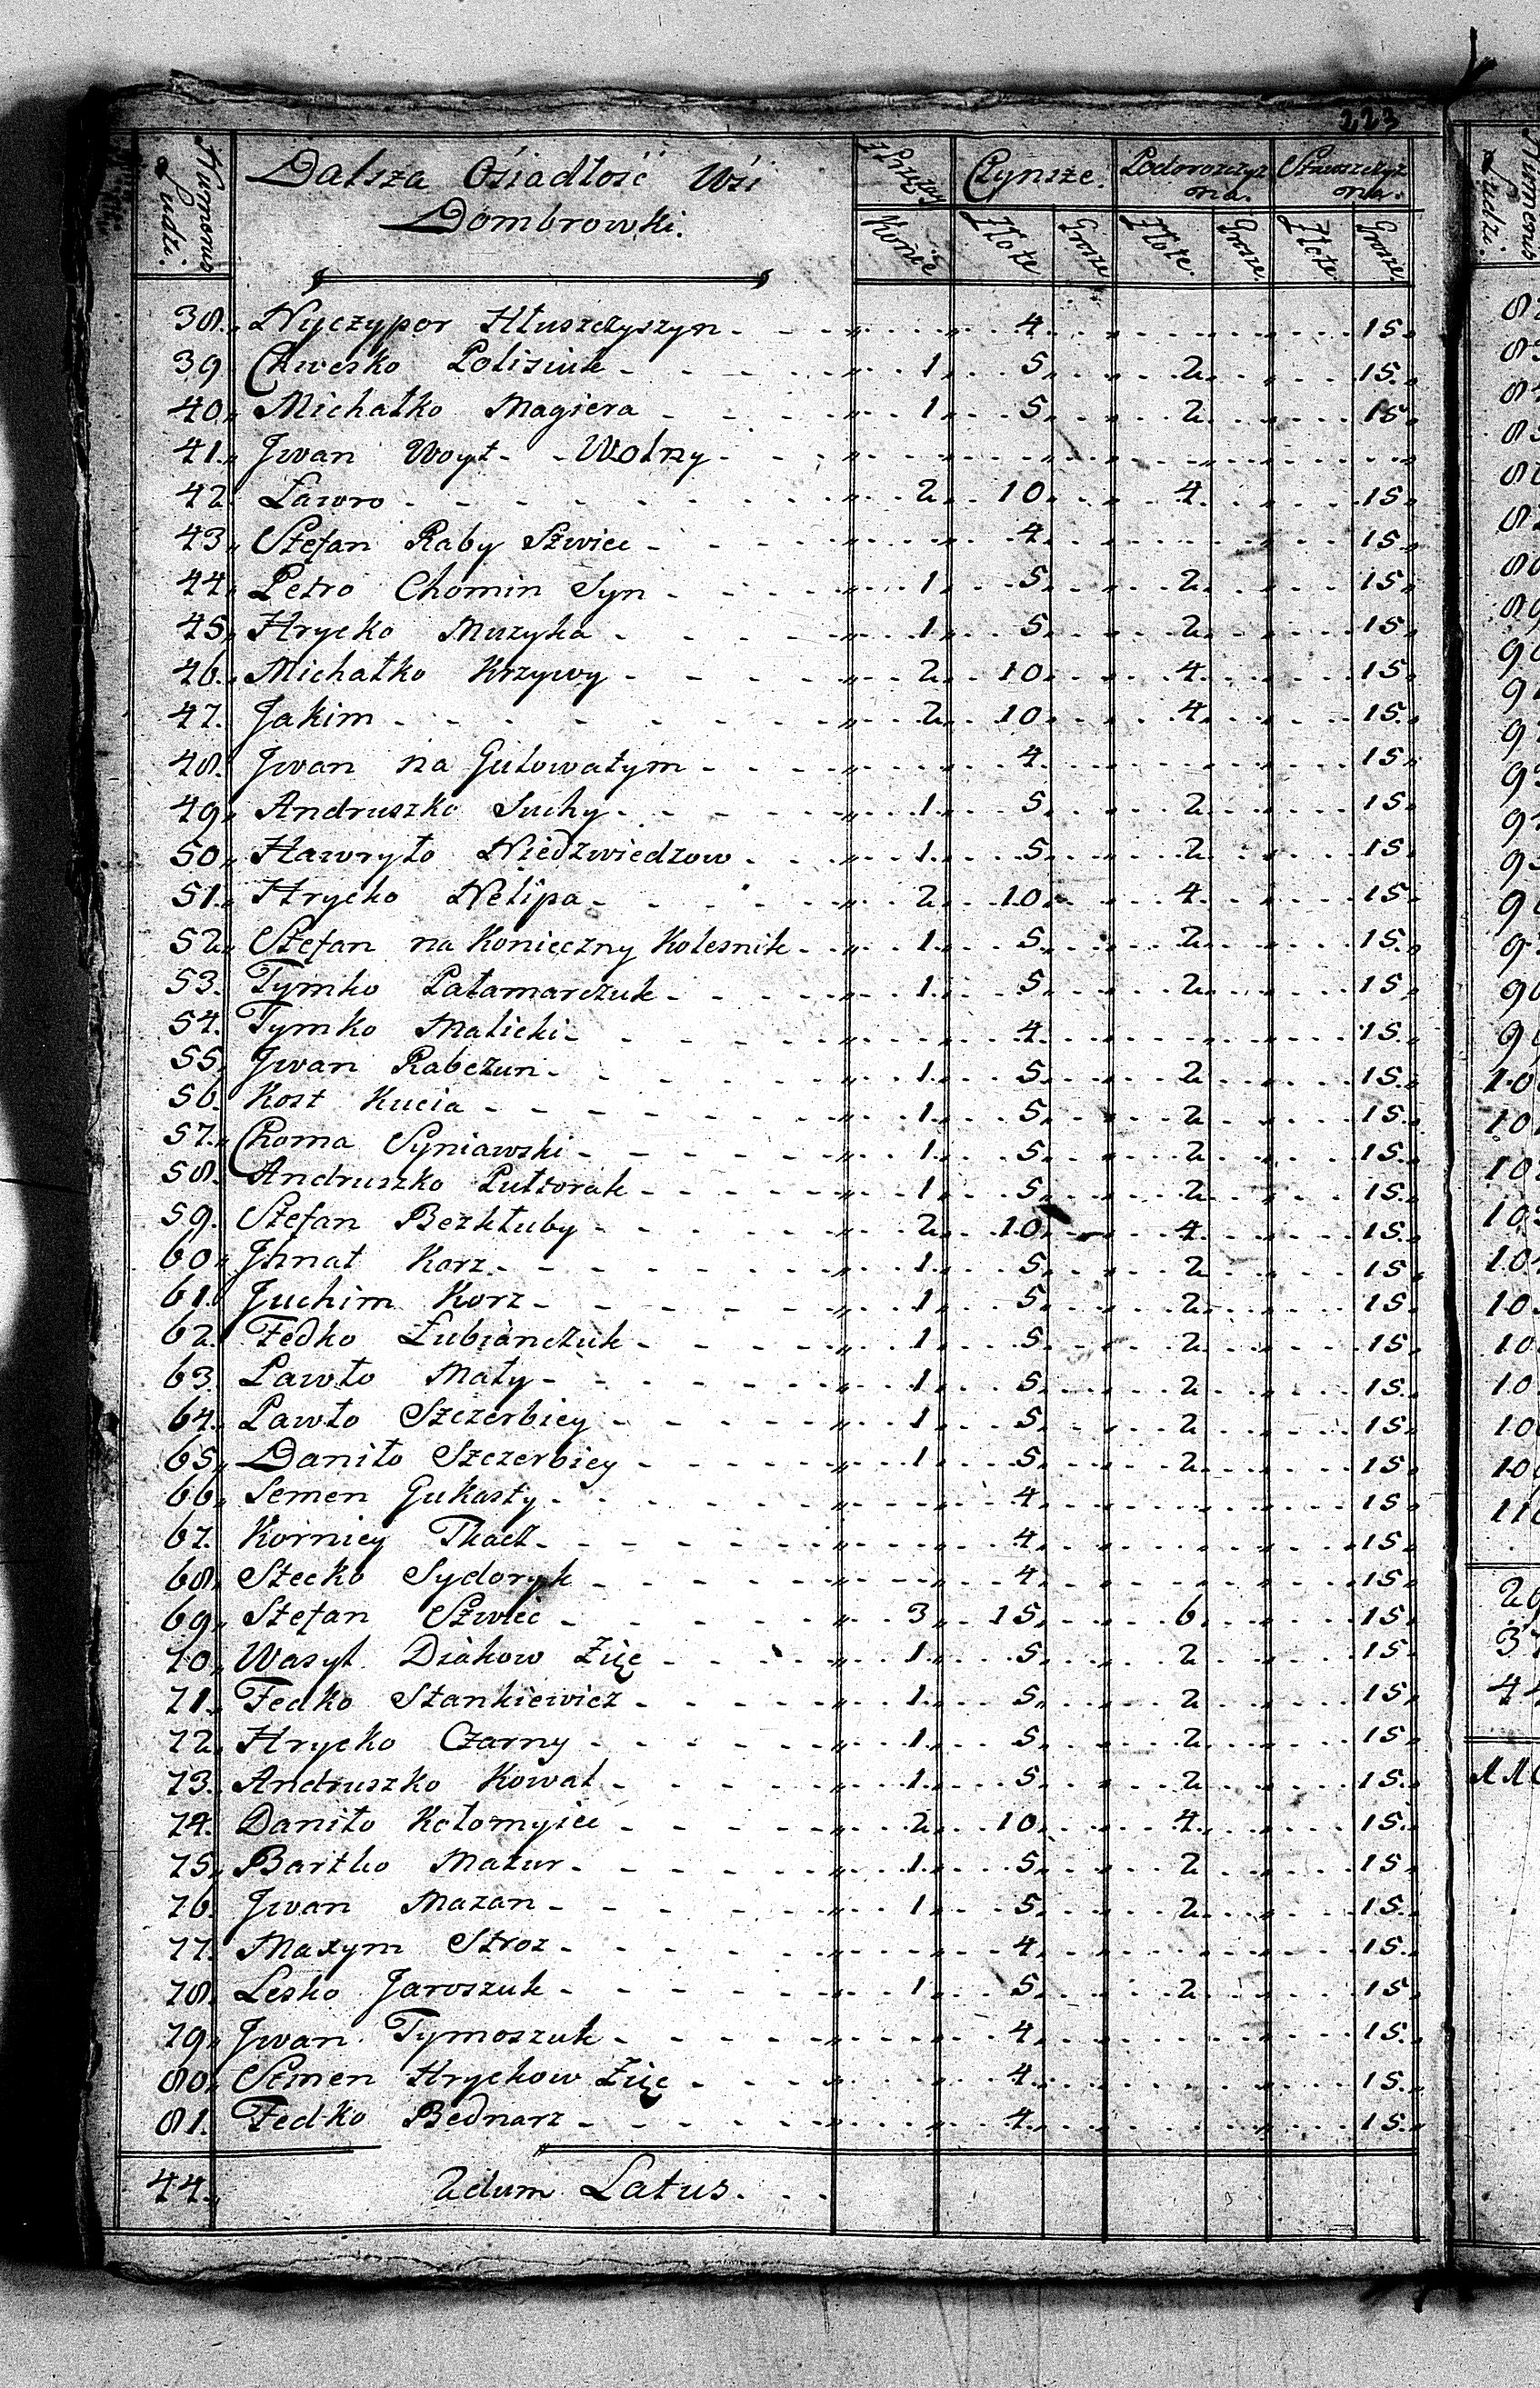 223
Numerus Ludzi. Dalsza Ośiadłosć Wśi Czynsze. Podoroszczyz Stroszczyz
Dombrowki. na. na.
Konie Złote Grosze Złote. Grosze. Złote Grosze.
38. Nyczypor Hłuszczyszyn 4 15
39 Chwesko Polisiuk 1 5 2 15
40 Michałko Magiera 1 5 2 15
41. Jwan Woyt Wolny
42 Ławro 2 10 4 15
43 Stefan Raby Szwiec 4 15
44 Petro Chomin Syn 1 5 2 15
45 Hrycko Muzyka 1 5 2 15
46. Michałko Krzywy 2 10 4 15
47. Jakim 2 10 4 15
48. Jwan na Gutowatym 4 15
49 Andruszko Suchy 1 5 2 15
50 Hawryło Niedzwiedzow 1 5 2 15
51. Hrycko Nelipa 2 10 4 15
52 Stefan na Konieczny Kolesnik 1 5 2 15
53. Tymko Pałamarczuk 1 5 2 15
54. Tymko Malicki 4 15
55 Jwan Rabczun 1 5 2 15
56. Kost Kucia 1 5 2 15
57. Choma Syniawski 1 5 2 15
58. Andruszko Pułtorak 1 5 2 15
59. Stefan Bezkłuby 2 10 4 15
60 Jhnat Korz 1 5 2 15
61. Juchim Korz 1 5 2 15
62. Fedko Łubianczuk 1 5 2 15
63. Pawło Mały 1 5 2 15
64. Pawło Szczerbiey 1 5 2 15
65 Daniło Szczerbiey 1 5 2 15
66 Semen Gukasty 4 15
67. Korniey Tkacz 4 15
68 Stecko Sydoryk 4 15
69 Stefan Szwiec 3 15 6 15
70 Wasyl Diakow Zięc 1 5 2 15
71. Fedko Stankiewicz 1 5 2 15
72 Hrycko Czarny 1 5 2 15
73. Andruszko Kowal 1 5 2 15
74. Daniło Kołomyiec 2 10 4 15
75 Bartko Mazur 1 5 2 15
76. Jwan Mazan 1 5 2 15
77. Maxym Stroz 4 15
78. Lesko Jaroszuk 1 5 2 15
79 Jwan Tymoszuk 4 15
80 Semen Hryckow Zięc 4 15
81. Fedko Bednarz 4 15
44. 2dum Latus.